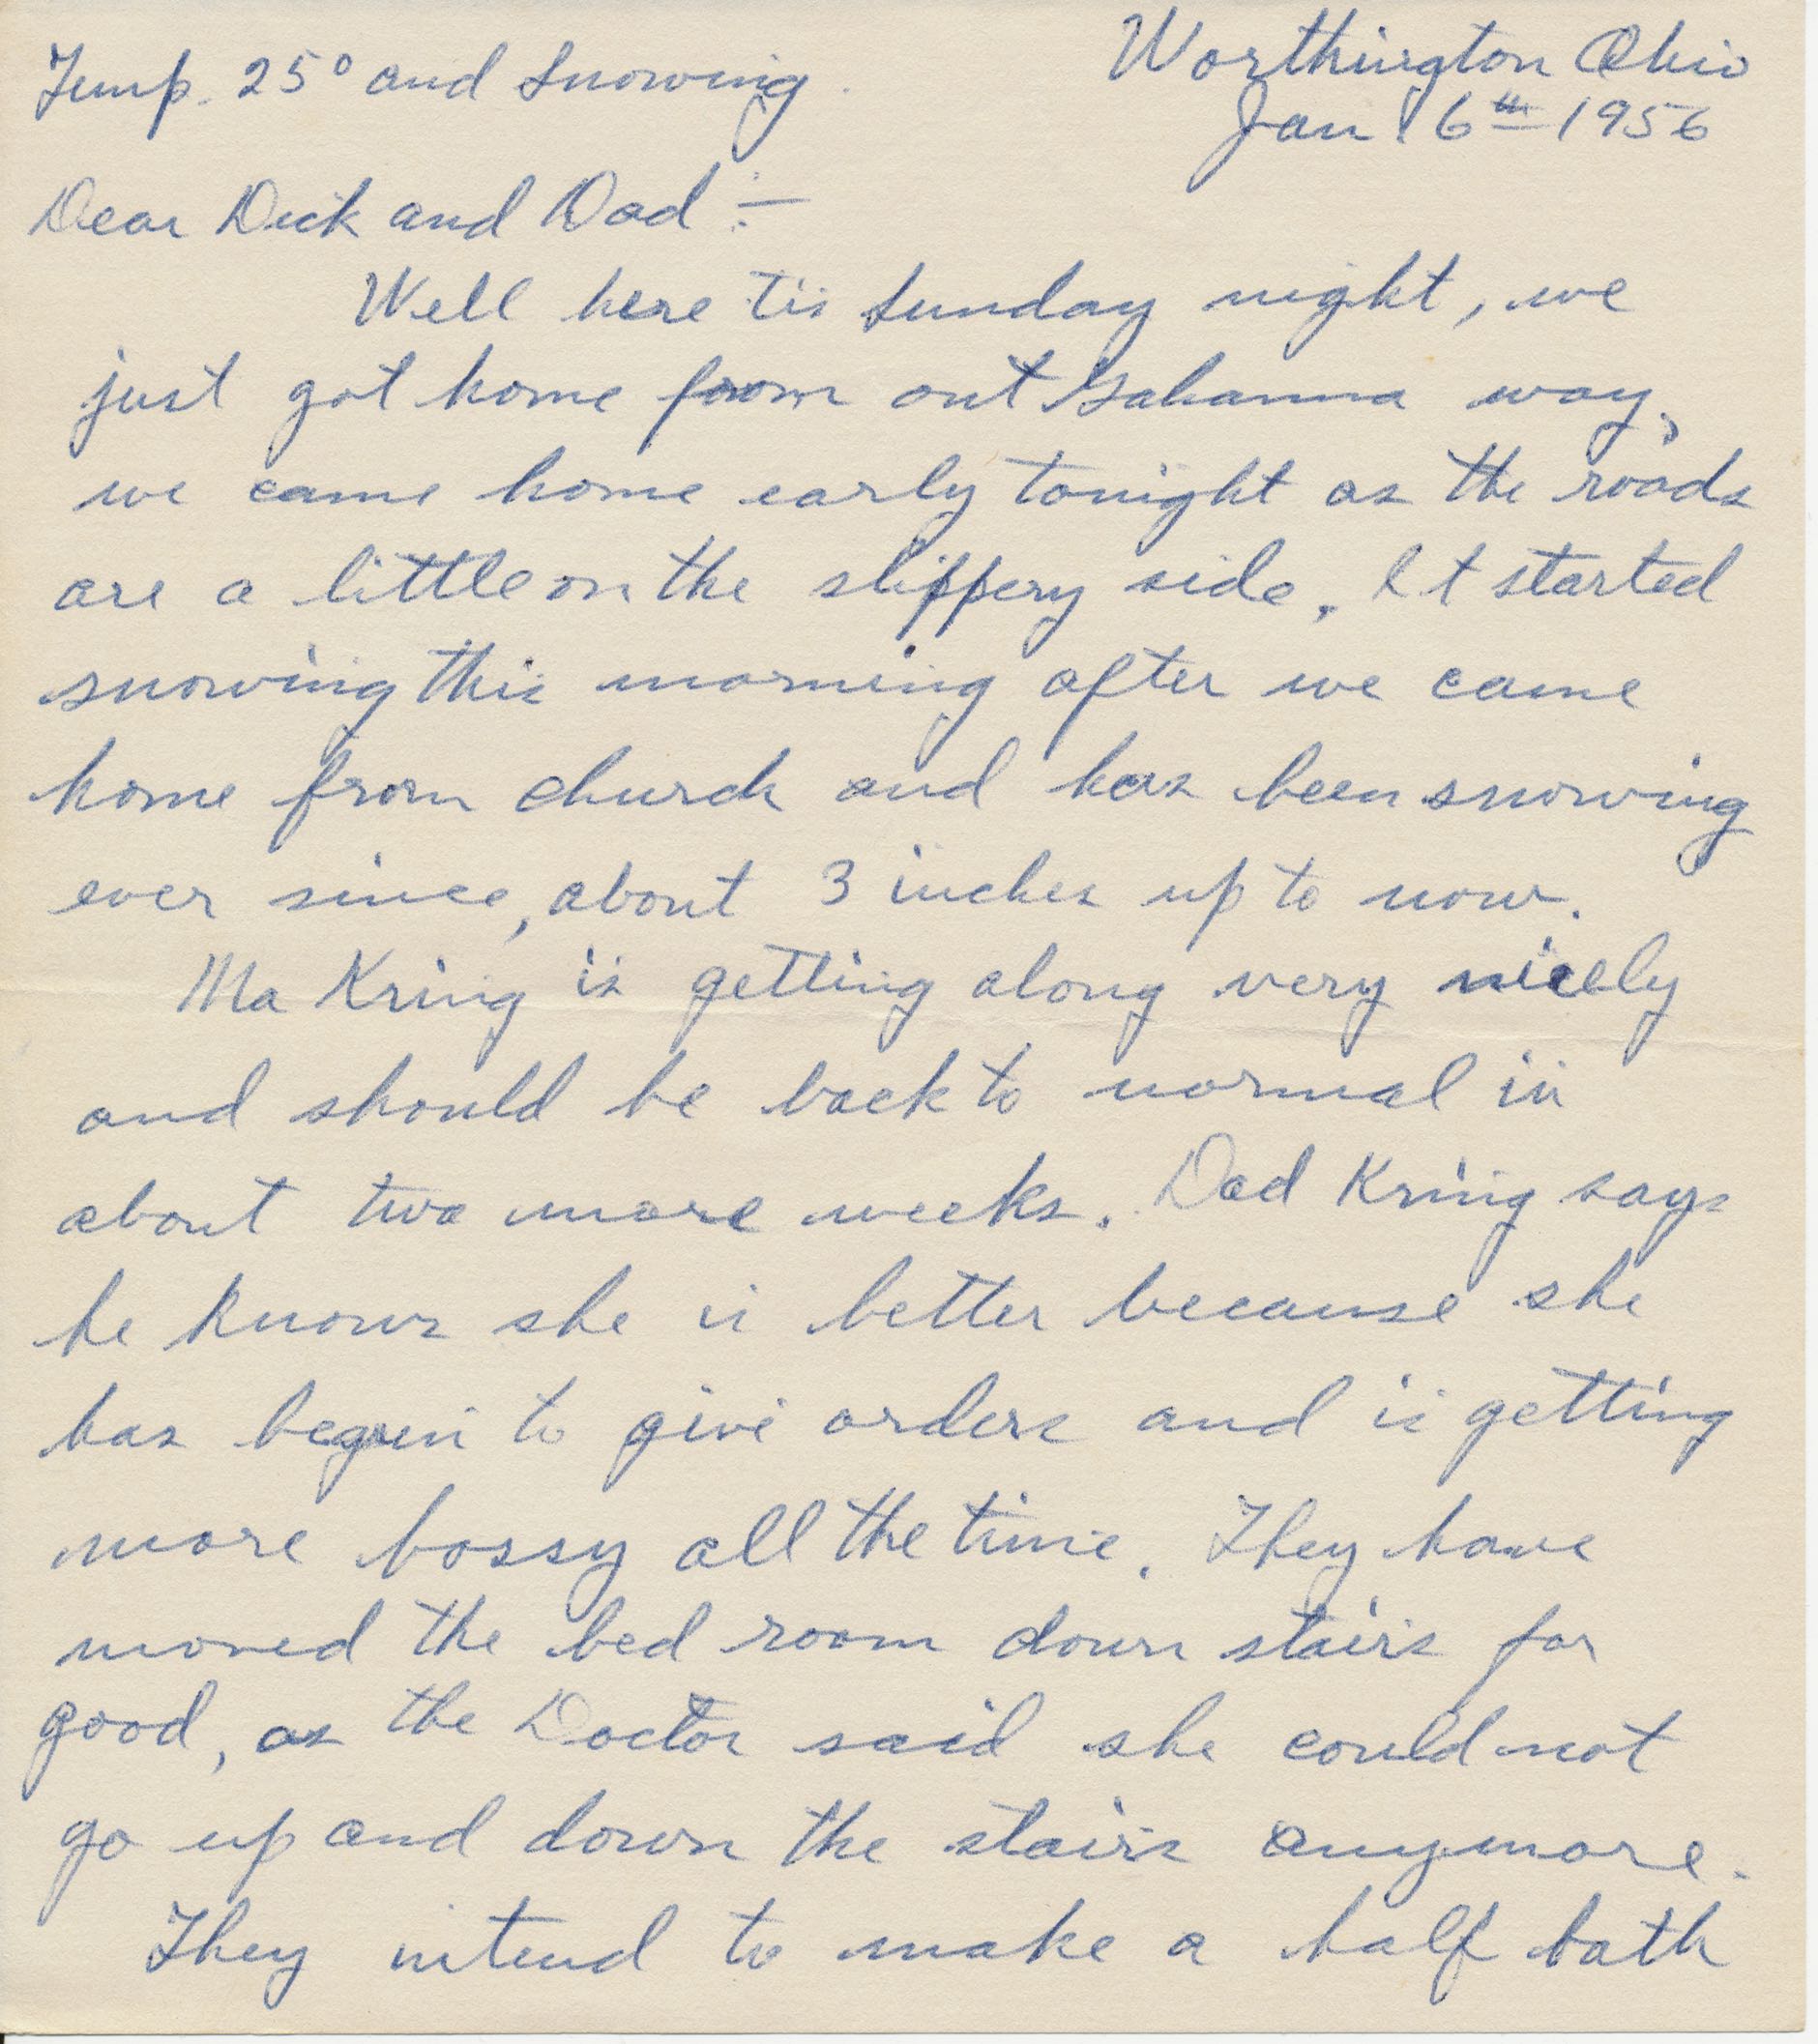 Temp. 25° and Snowing.
Worthington Ohio
Jan 6th 1956
Dear Dick and Dad :-
Well here tis Sunday night, we
just got home from out Gahanna way,
we came home early tonight as the roads
are a little on the slippery side. It started
snowing this morning after we came
home from church and has been snowing
ever since, about 3 inches up to now.
Ma Kring is getting along very nicely
and should be back to normal in
about two more weeks. Dad Kring says
he knows she is better because she
has begun to give orders and is getting
more bossy all the time. They have
moved the bed room down stairs for
good, as the Doctor said she could not
go up and down the stairs anymore.
They intend to make a half bath